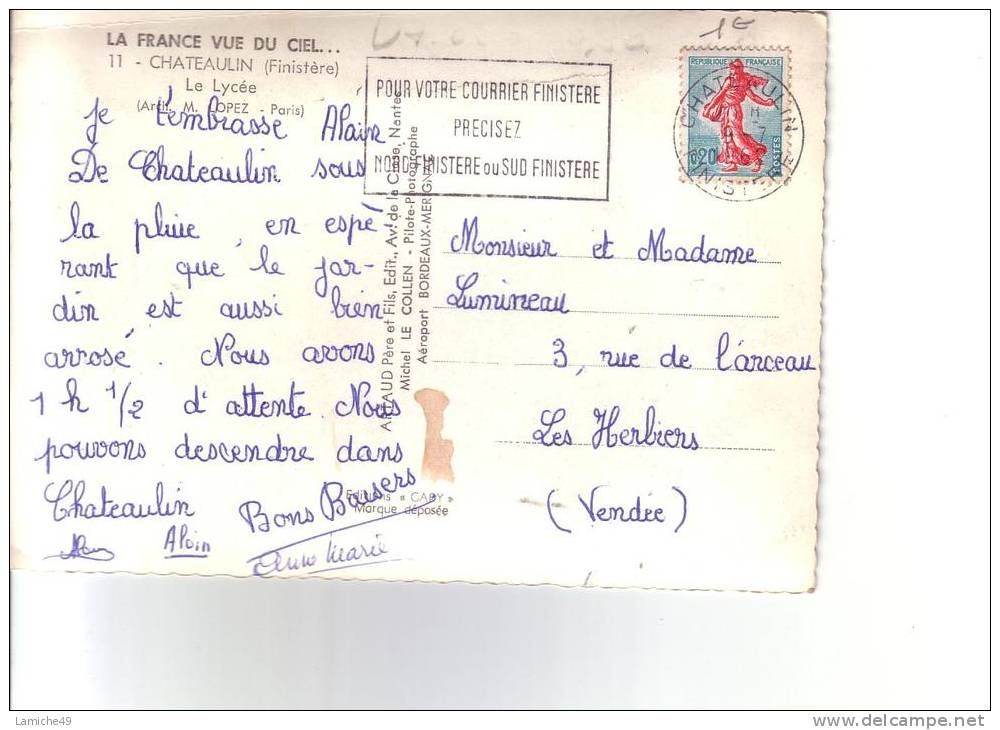 LA FRANCE VUE DU CIEL...
11 - CHATEAULIN (Finistère)
Le Lycée
(Arch. M. LOPEZ - Paris)
Je t'embrasse Alain
De Chateaulin sous
la pluie, en espè
rant que le jar-
din est aussi bien
arrosé. Nous avons
1 h 1/2 d'attente. Nous
pouvons descendre dans
Chateaulin
Bons Baisers
Alain
Anne Marie
ARTAUD Père et Fils, Edit., Av. de la Close, Nantes
Michel LE COLLEN - Pilote-Photographe
Aéroport BORDEAUX-MERIGNAC
Editions « GABY »
Marque déposée
POUR VOTRE COURRIER FINISTERE
PRECISEZ
NORD FINISTERE OU SUD FINISTERE
1€
REPUBLIQUE FRANÇAISE
0,20
POSTES
CHATEAULIN
FINISTERE
Monsieur et Madame
Lumineau
3, rue de l'arceau
Les Herbiers
(Vendée)
Lamiche49
www.delcampe.net